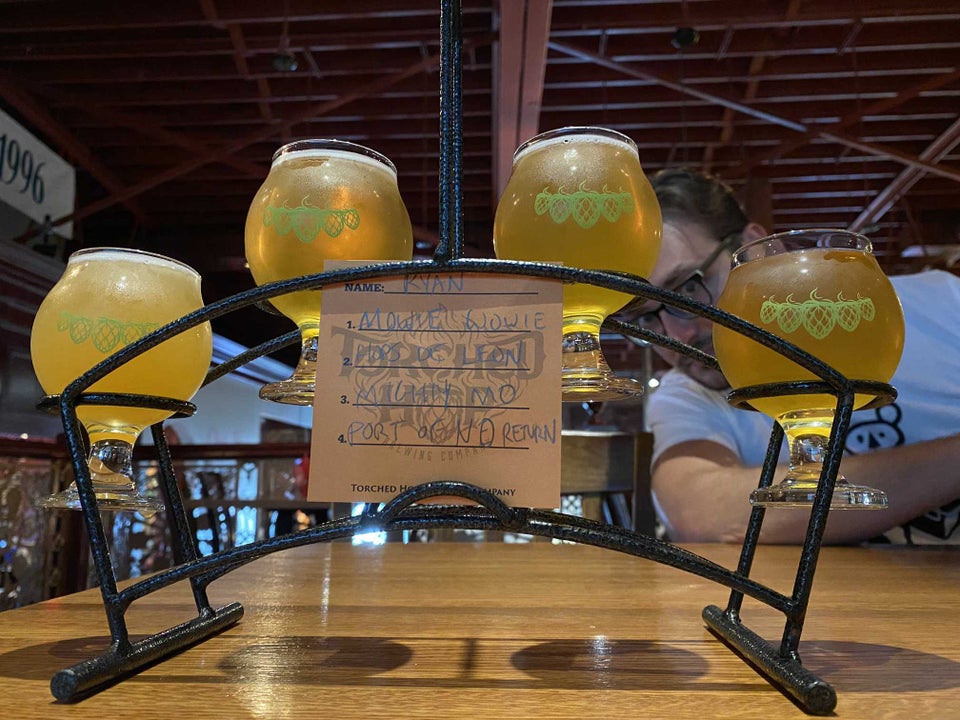 1996
NAME: RYAN
1. MOWIE WOWIE
2. HOPS DE LEON
3. MICHIN MO
4. PORT OF NO RETURN
TORCHED HOP
BREWING COMPANY
TORCHED HO COMPANY